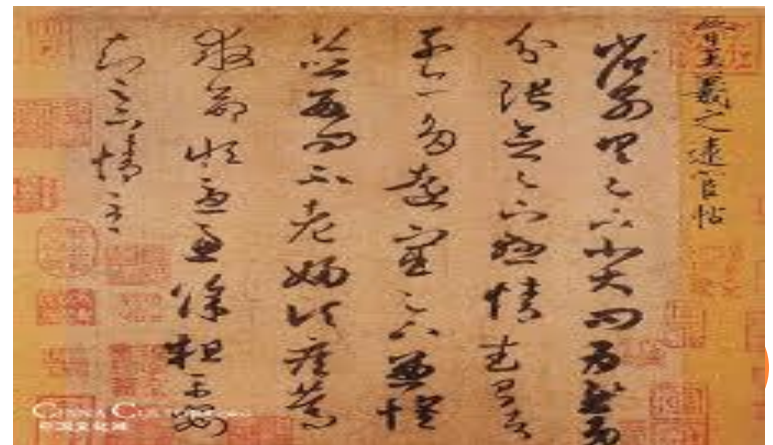 晉王羲之遠宦帖
省別具足下小大問為慰多
分張念足下懸情武昌諸
子亦多遠宦足下兼懷
並數問不老婦頃疾篤
救命恒憂慮餘粗平安
知足下情至
CHINA CULTURE.ORG
中国文化网